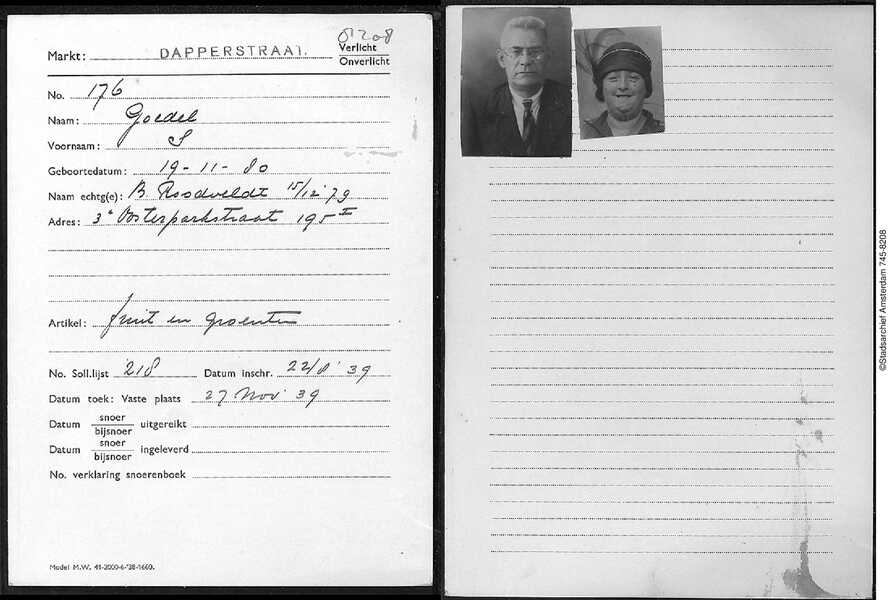 8208
Markt: DAPPERSTRAAT. Verlicht
Onverlicht
No. 176
Naam: Goedel
Voornaam: S
Geboortedatum: 19-11-80
Naam echtg(e): B. Roodveldt 15/12 '79
Adres: 3e Oosterparkstraat 195 I
Artikel: fruit en groenten
No. Soll.lijst 218 Datum inschr. 22/8 '39
Datum toek: Vaste plaats 27 Nov '39
Datum snoer
bijsnoer uitgereikt
Datum snoer
bijsnoer ingeleverd
No. verklaring snoerenboek
Model M.W. 41-2000-6-'38-1660.
©Stadsarchief Amsterdam 745-8208